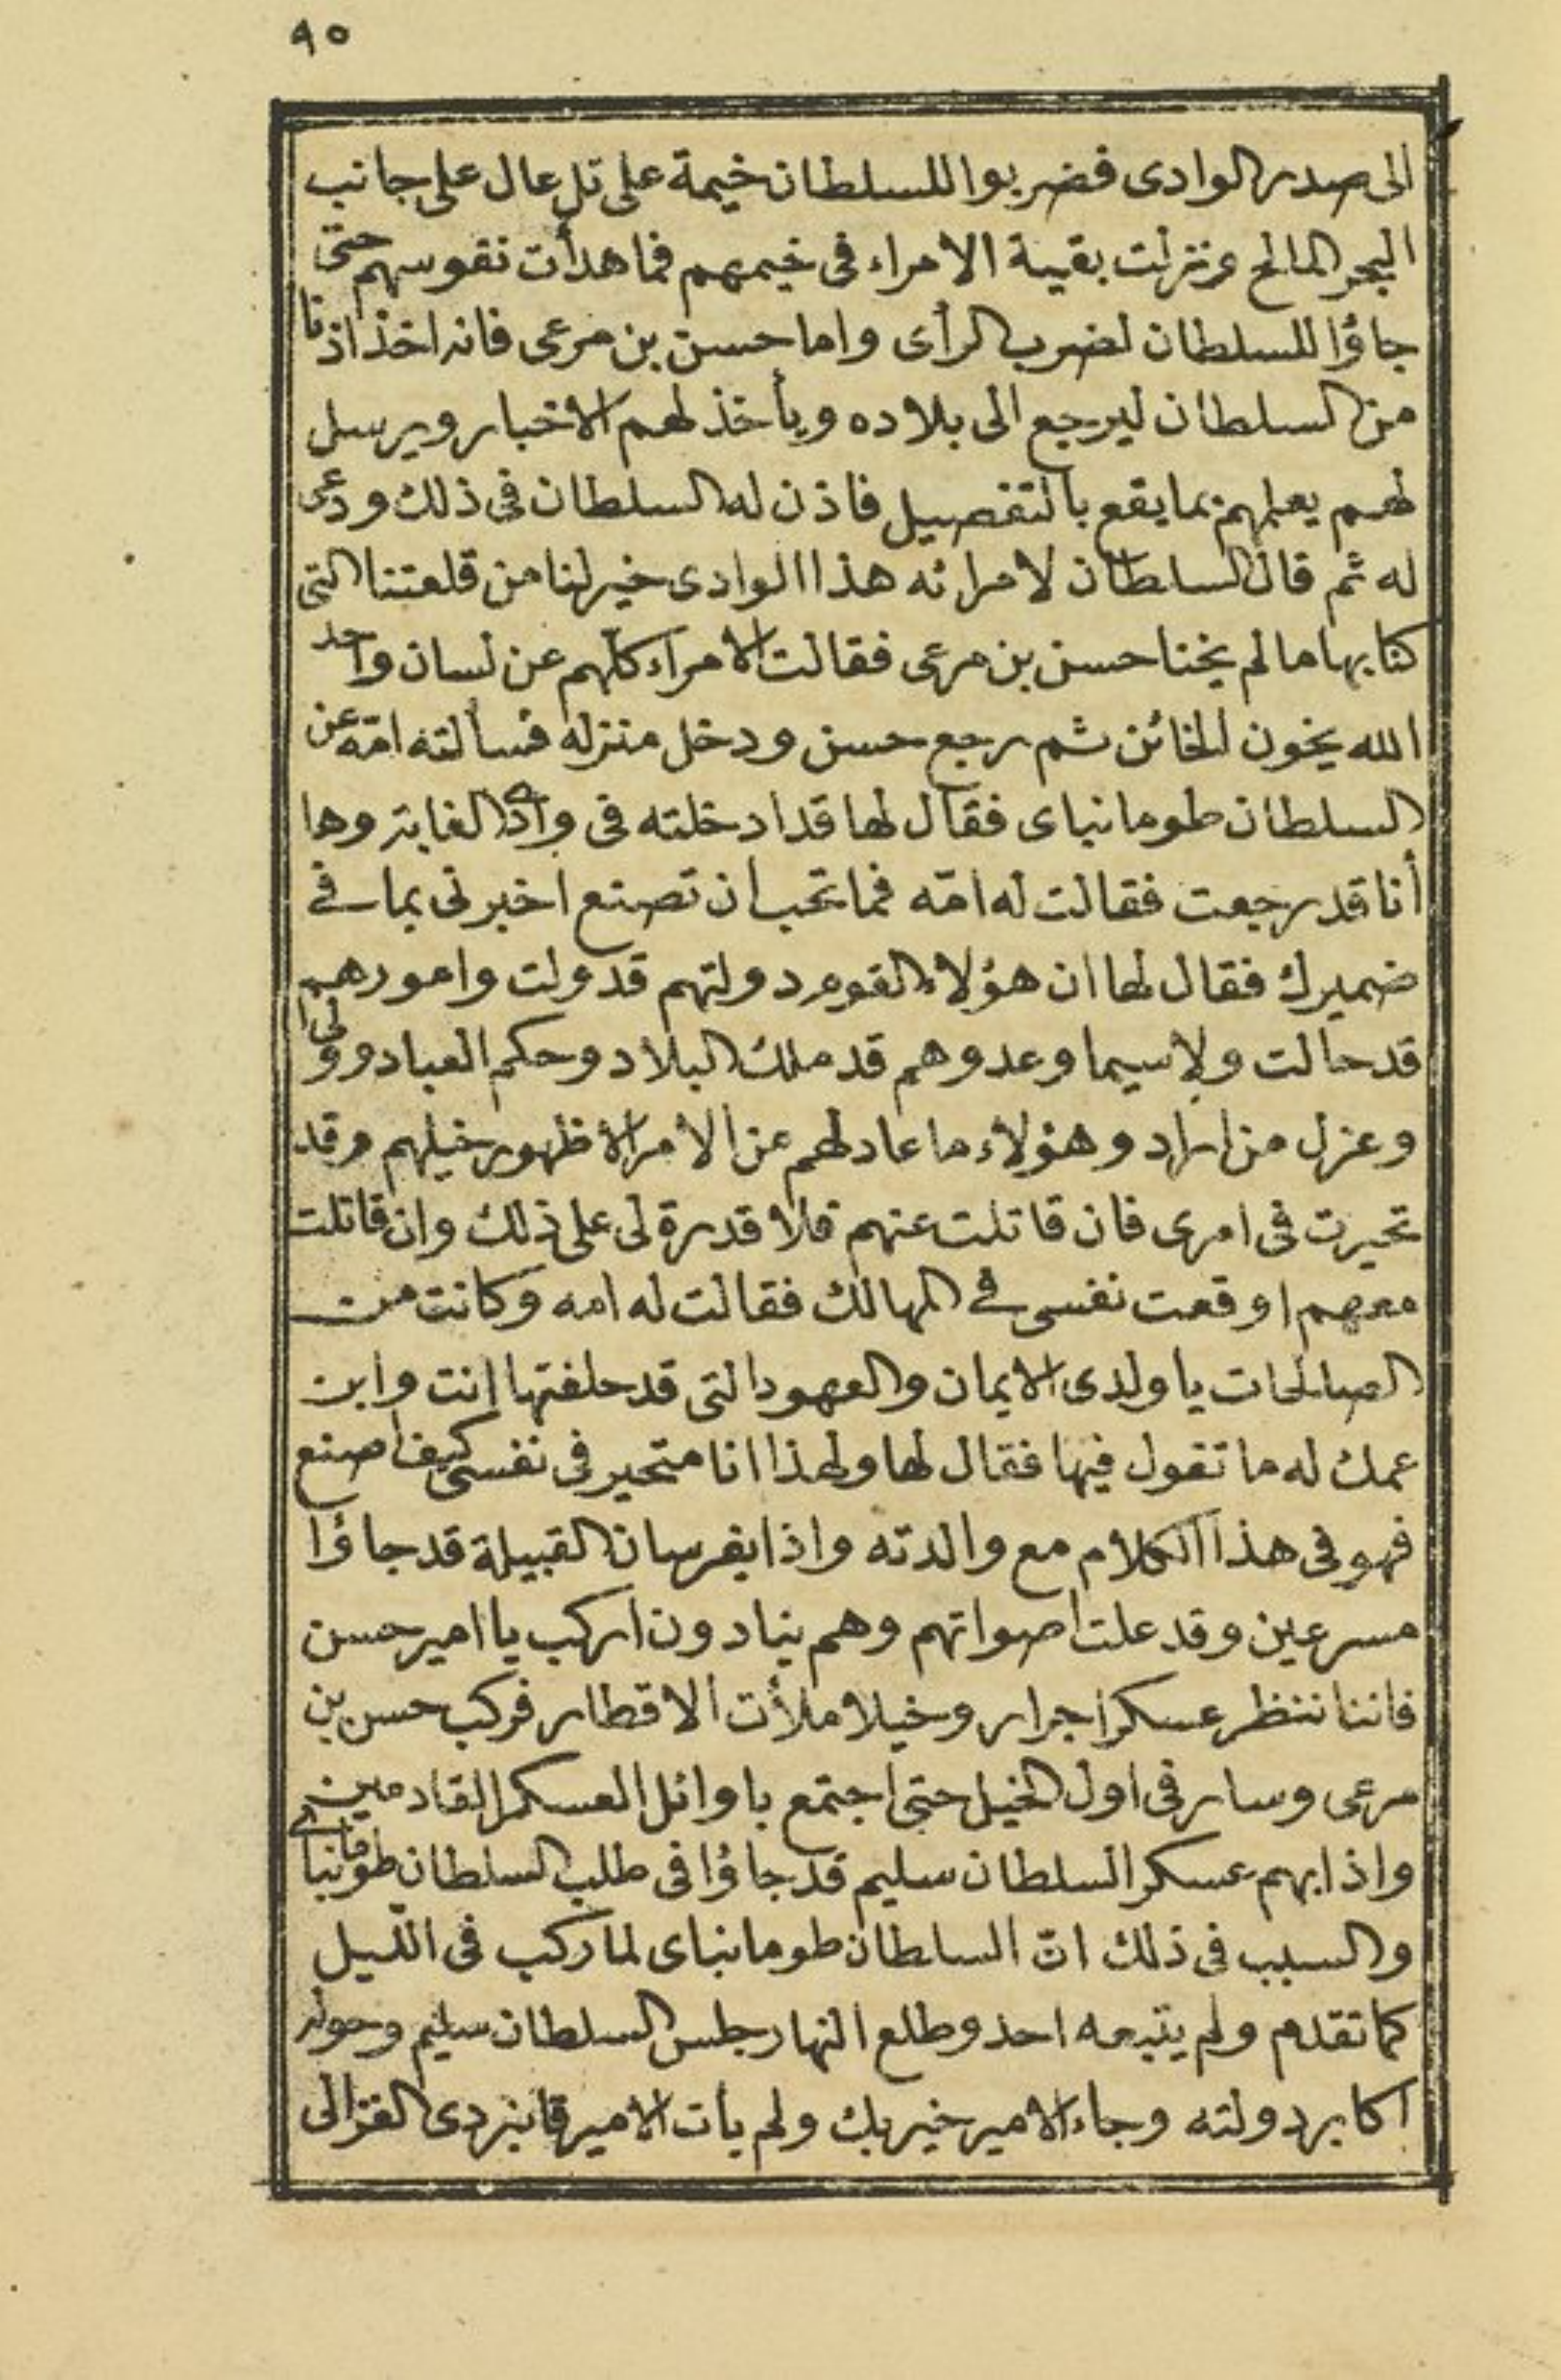 ٩٥
الى صدر الوادى فضربوا للسلطان خيمة على تل عال على جانب
البحر المالح ونزلت بقية الامراء فى خيمهم فما هدأت نفوسهم حتى
جاؤا للسلطان لضرب الرأى واما حسن بن مرعى فانه اخذ اذنا
من السلطان ليرجع الى بلاده ويأخذ لهم الاخبار ويرسل
لهم يعلمهم بما يقع بالتفصيل فاذن له السلطان فى ذلك ودعى
له ثم قال السلطان لامرائه هذا الوادى خير لنا من قلعتنا التى
كنا بها ما لم يخنا حسن بن مرعى فقالت الامراء كلهم عن لسان واحد
الله يخون الخائن ثم رجع حسن ودخل منزله فسألته امّه عن
السلطان طومانباى فقال لها قد ادخلته فى وادى الغابة وها
أنا قد رجعت فقالت له امّه فما تحب ان تصنع اخبرنى بما فى
ضميرك فقال لها ان هؤلاء القوم دولتهم قد ولت وامورهم
قد حالت ولا سيما وعدوهم قد ملك البلاد وحكم العباد وولى
وعزل من اراد وهؤلاء ما عاد لهم من الامر الا ظهور خيلهم وقد
تحيرت فى امرى فان قاتلت عنهم فلا قدرة لى على ذلك وان قاتلت
معهم اوقعت نفسى فى المهالك فقالت له امه وكانت من
الصالحات يا ولدى الايمان والعهود التى قد حلفتها انت وابن
عمك له ما تقول فيها فقال لها ولهذا انا متحير فى نفسى كيف اصنع
فهو فى هذا الكلام مع والدته واذا بفرسان القبيلة قد جاؤا
مسرعين وقد علت اصواتهم وهم ينادون اركب يا امير حسن
فاننا ننظر عسكرا جرار وخيلا ملأت الاقطار فركب حسن بن
مرعى وسار فى اول الخيل حتى اجتمع باوائل العسكر القادمين
واذا بهم عسكر السلطان سليم قد جاؤا فى طلب السلطان طومانباى
والسبب فى ذلك انّ السلطان طومانباى لما ركب فى اللّيل
كما تقدم ولم يتبعه احد وطلع النهار جلس السلطان سليم وحوله
اكابر دولته وجاء الامير خير بك ولم يأت الامير قانبزدى الغزالى